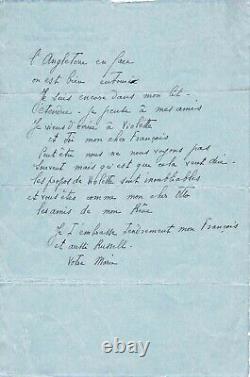 l'Angleterre en face
on est bien entouré
Je suis encore dans mon lit -
Octobre - je pense à mes amis
Je viens d'écrire à Violette
et toi mon cher François
Peut être nous ne nous voyons pas
souvent mais qu'est que cela veut dire -
les propos de Violette sont inoubliables
et vous êtes comme mon cher
les amis de mon Rêve
Je t'embrasse tendrement mon François
et aussi Russell -
Votre Marie
© 164.com